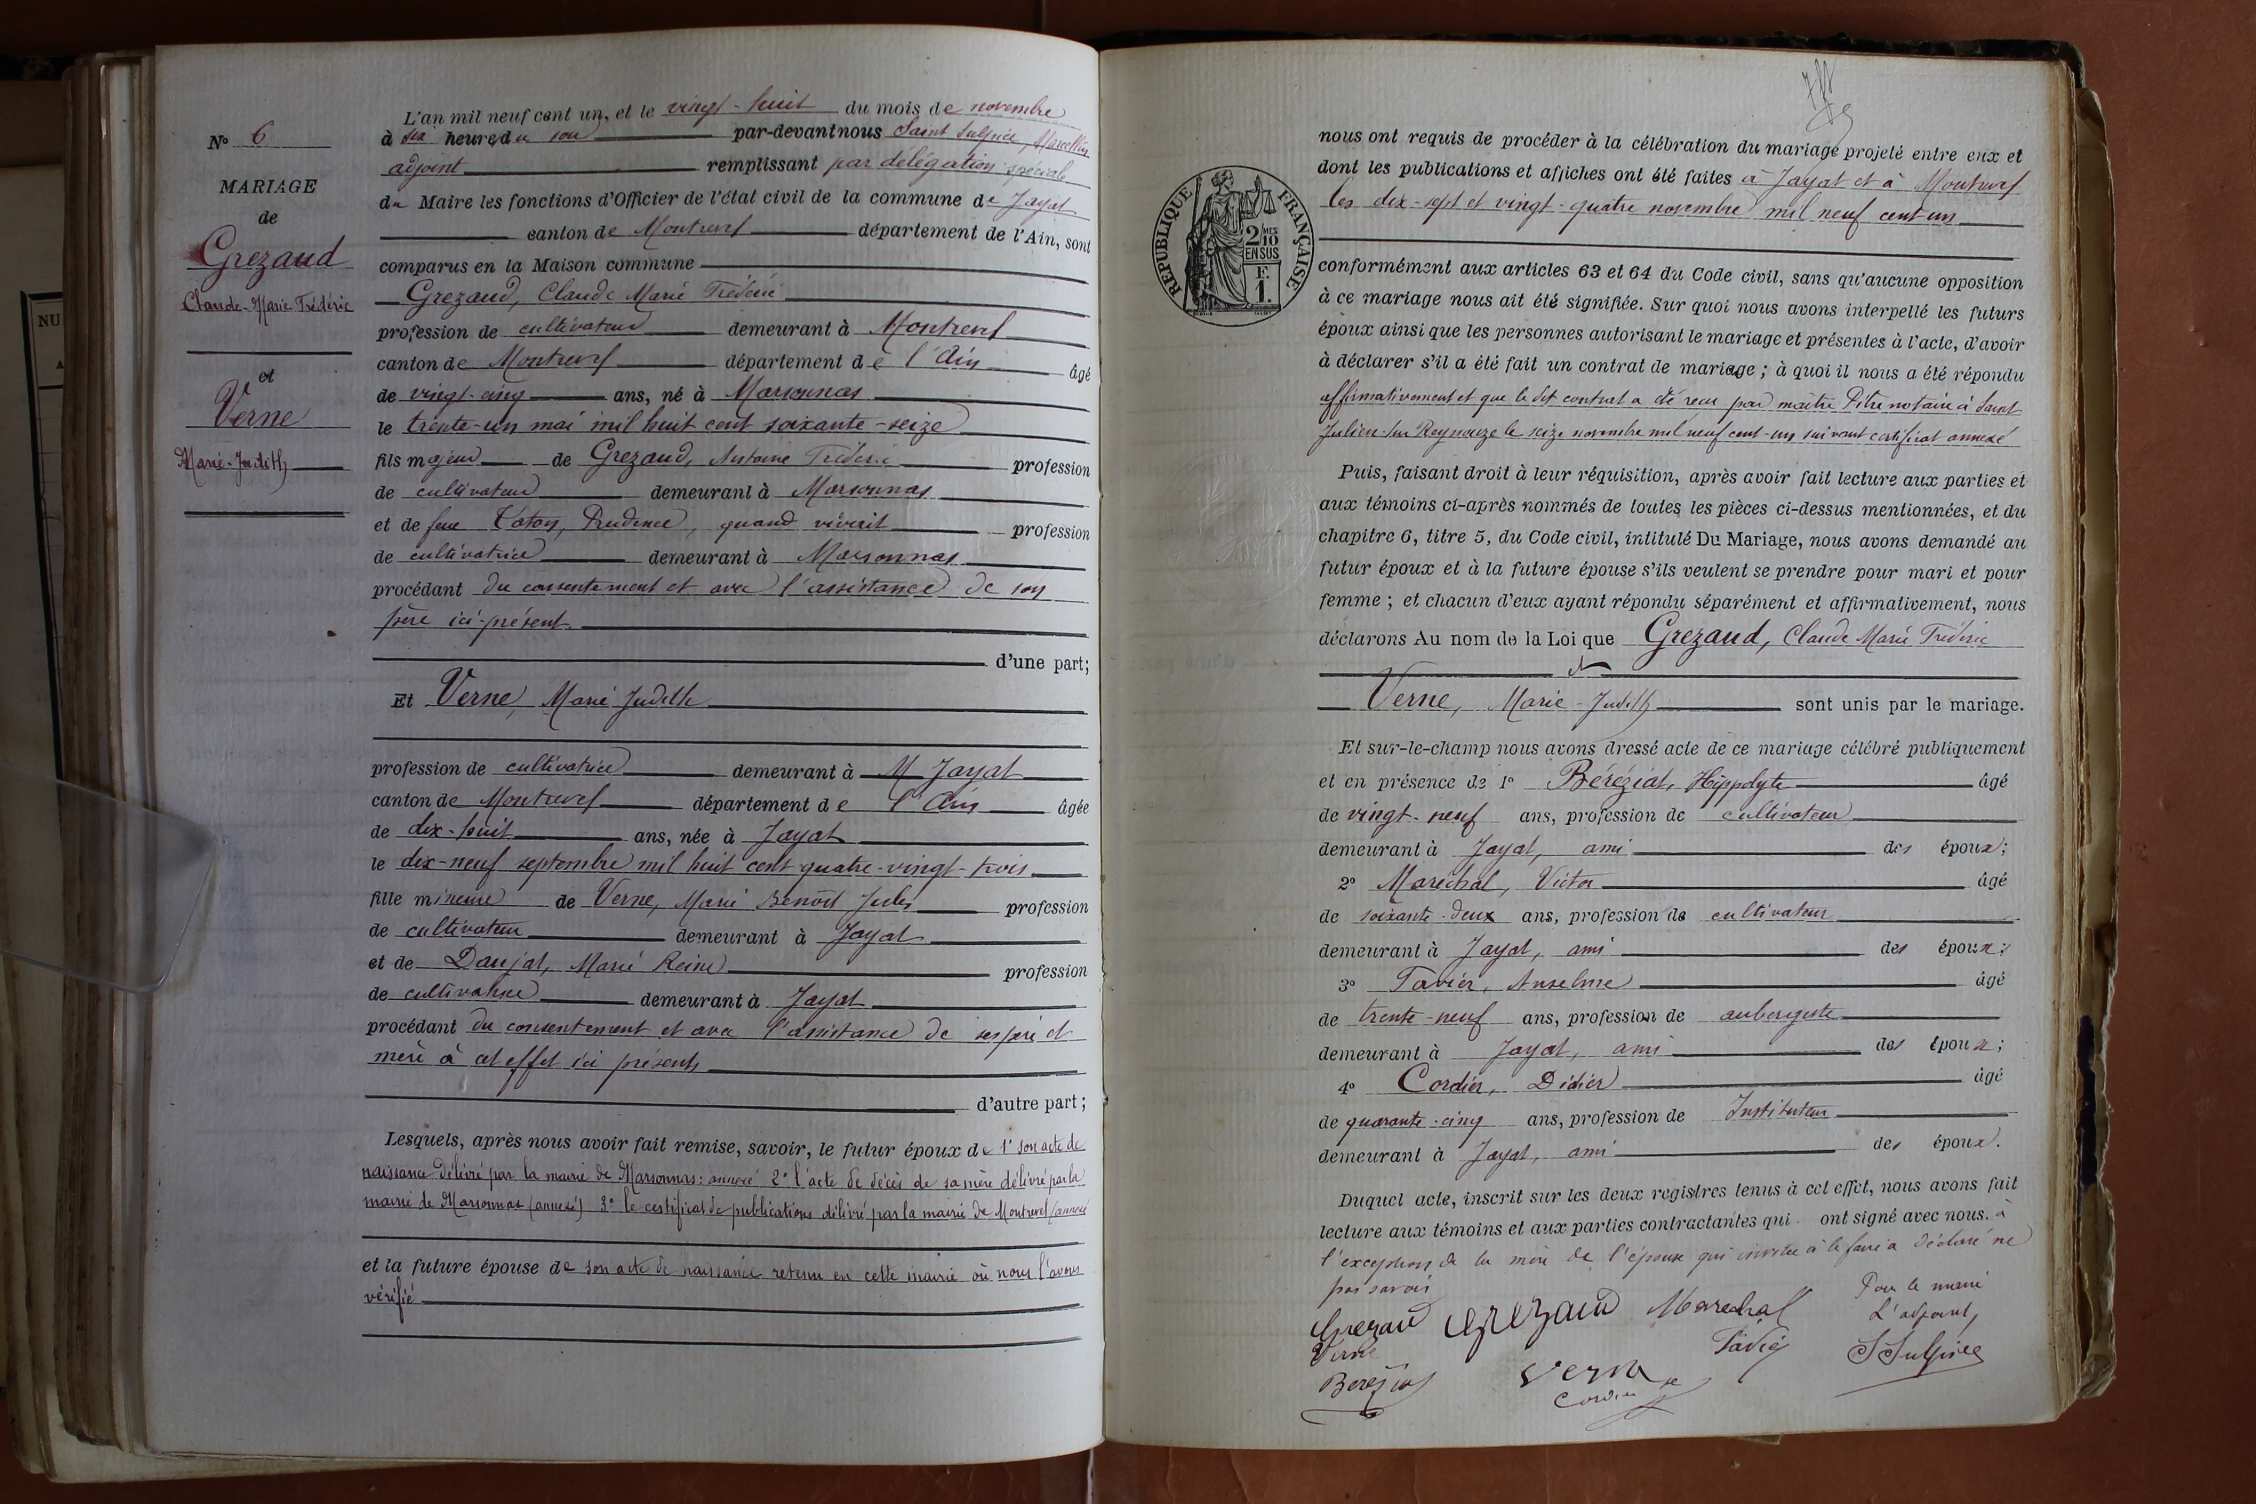 N° 6
MARIAGE
de
Grezaud
Claude-Marie-Frédéric
et
Verne
Marie-Judith
L'an mil neuf cent un, et le vingt-huit du mois de novembre
à six heures du soir par-devant nous Saint Sulpice, Marcellin
adjoint remplissant par délégation spéciale
du Maire les fonctions d'Officier de l'état civil de la commune de Jayat
canton de Montrevel département de l'Ain, sont
comparus en la Maison commune
Grezaud, Claude Marie Frédéric
profession de cultivateur demeurant à Montrevel
canton de Montrevel département de l'Ain âgé
de vingt-cinq ans, né à Marsonnas
le trente-un mai mil huit cent soixante-seize
fils majeur de Grezaud, Antoine Frédéric profession
de cultivateur demeurant à Marsonnas
et de feue Prudence, quand vivait profession
de cultivatrice demeurant à Marsonnas
procédant du consentement et avec l'assistance de son
père ici-présent.
d'une part;
Et Verne, Marie Judith
profession de cultivatrice demeurant à Jayat
canton de Montrevel département de l'Ain âgée
de dix-huit ans, née à Jayat
le dix-neuf septembre mil huit cent quatre-vingt-trois
fille mineure de Verne, Marie Benoît Jules profession
de cultivateur demeurant à Jayat
et de Daujat, Marie Reine profession
de cultivatrice demeurant à Jayat
procédant du consentement et avec l'assistance de ses père et
mère à cet effet ici présents
d'autre part;
Lesquels, après nous avoir fait remise, savoir, le futur époux de 1° son acte de
naissance délivré par la mairie de Marsonnas: annexé 2° l'acte de décès de sa mère délivré par la
mairie de Marsonnas (annexé) 3° le certificat de publications délivré par la mairie de Montrevel (annexé
et la future épouse de son acte de naissance retenu en cette mairie où nous l'avons
vérifié
nous ont requis de procéder à la célébration du mariage projeté entre eux et
dont les publications et affiches ont été faites à Jayat et à Montrevel
les dix-sept et vingt-quatre novembre mil neuf cent-un
RÉPUBLIQUE FRANÇAISE
2 MES
10
EN SUS
F.
1.
conformément aux articles 63 et 64 du Code civil, sans qu'aucune opposition
à ce mariage nous ait été signifiée. Sur quoi nous avons interpellé les futurs
époux ainsi que les personnes autorisant le mariage et présentes à l'acte, d'avoir
à déclarer s'il a été fait un contrat de mariage ; à quoi il nous a été répondu
affirmativement et que le dit contrat a été reçu par maître Pitre notaire à Saint
Julien-sur Reyssouze le seize novembre mil neuf cent-un suivant certificat annexé
Puis, faisant droit à leur réquisition, après avoir fait lecture aux parties et
aux témoins ci-après nommés de toutes les pièces ci-dessus mentionnées, et du
chapitre 6, titre 5, du Code civil, intitulé Du Mariage, nous avons demandé au
futur époux et à la future épouse s'ils veulent se prendre pour mari et pour
femme ; et chacun d'eux ayant répondu séparément et affirmativement, nous
déclarons Au nom de la Loi que Grezaud, Claude Marie Frédéric
et
Verne, Marie-Judith sont unis par le mariage.
Et sur-le-champ nous avons dressé acte de ce mariage célébré publiquement
et en présence de 1° Béréziat, Hippolyte âgé
de vingt-neuf ans, profession de cultivateur
demeurant à Jayat, ami des époux;
2° Maréchal, Victor âgé
de soixante-deux ans, profession de cultivateur
demeurant à Jayat, ami des époux;
3° Tavier, Anselme âgé
de trente-neuf ans, profession de aubergiste
demeurant à Jayat, ami des époux;
4° Cordier, Didier âgé
de quarante-cinq ans, profession de Instituteur
demeurant à Jayat, ami des époux.
Duquel acte, inscrit sur les deux registres tenus à cet effet, nous avons fait
lecture aux témoins et aux parties contractantes qui ont signé avec nous. à
l'exception de la mère de l'épouse qui invitée à le faire a déclaré ne
pas savoir
Pour le maire
L'adjoint,
Grezaud Grezaud Marechal
Verne Tavier SSulpice
Bereziat Verne
Cordier